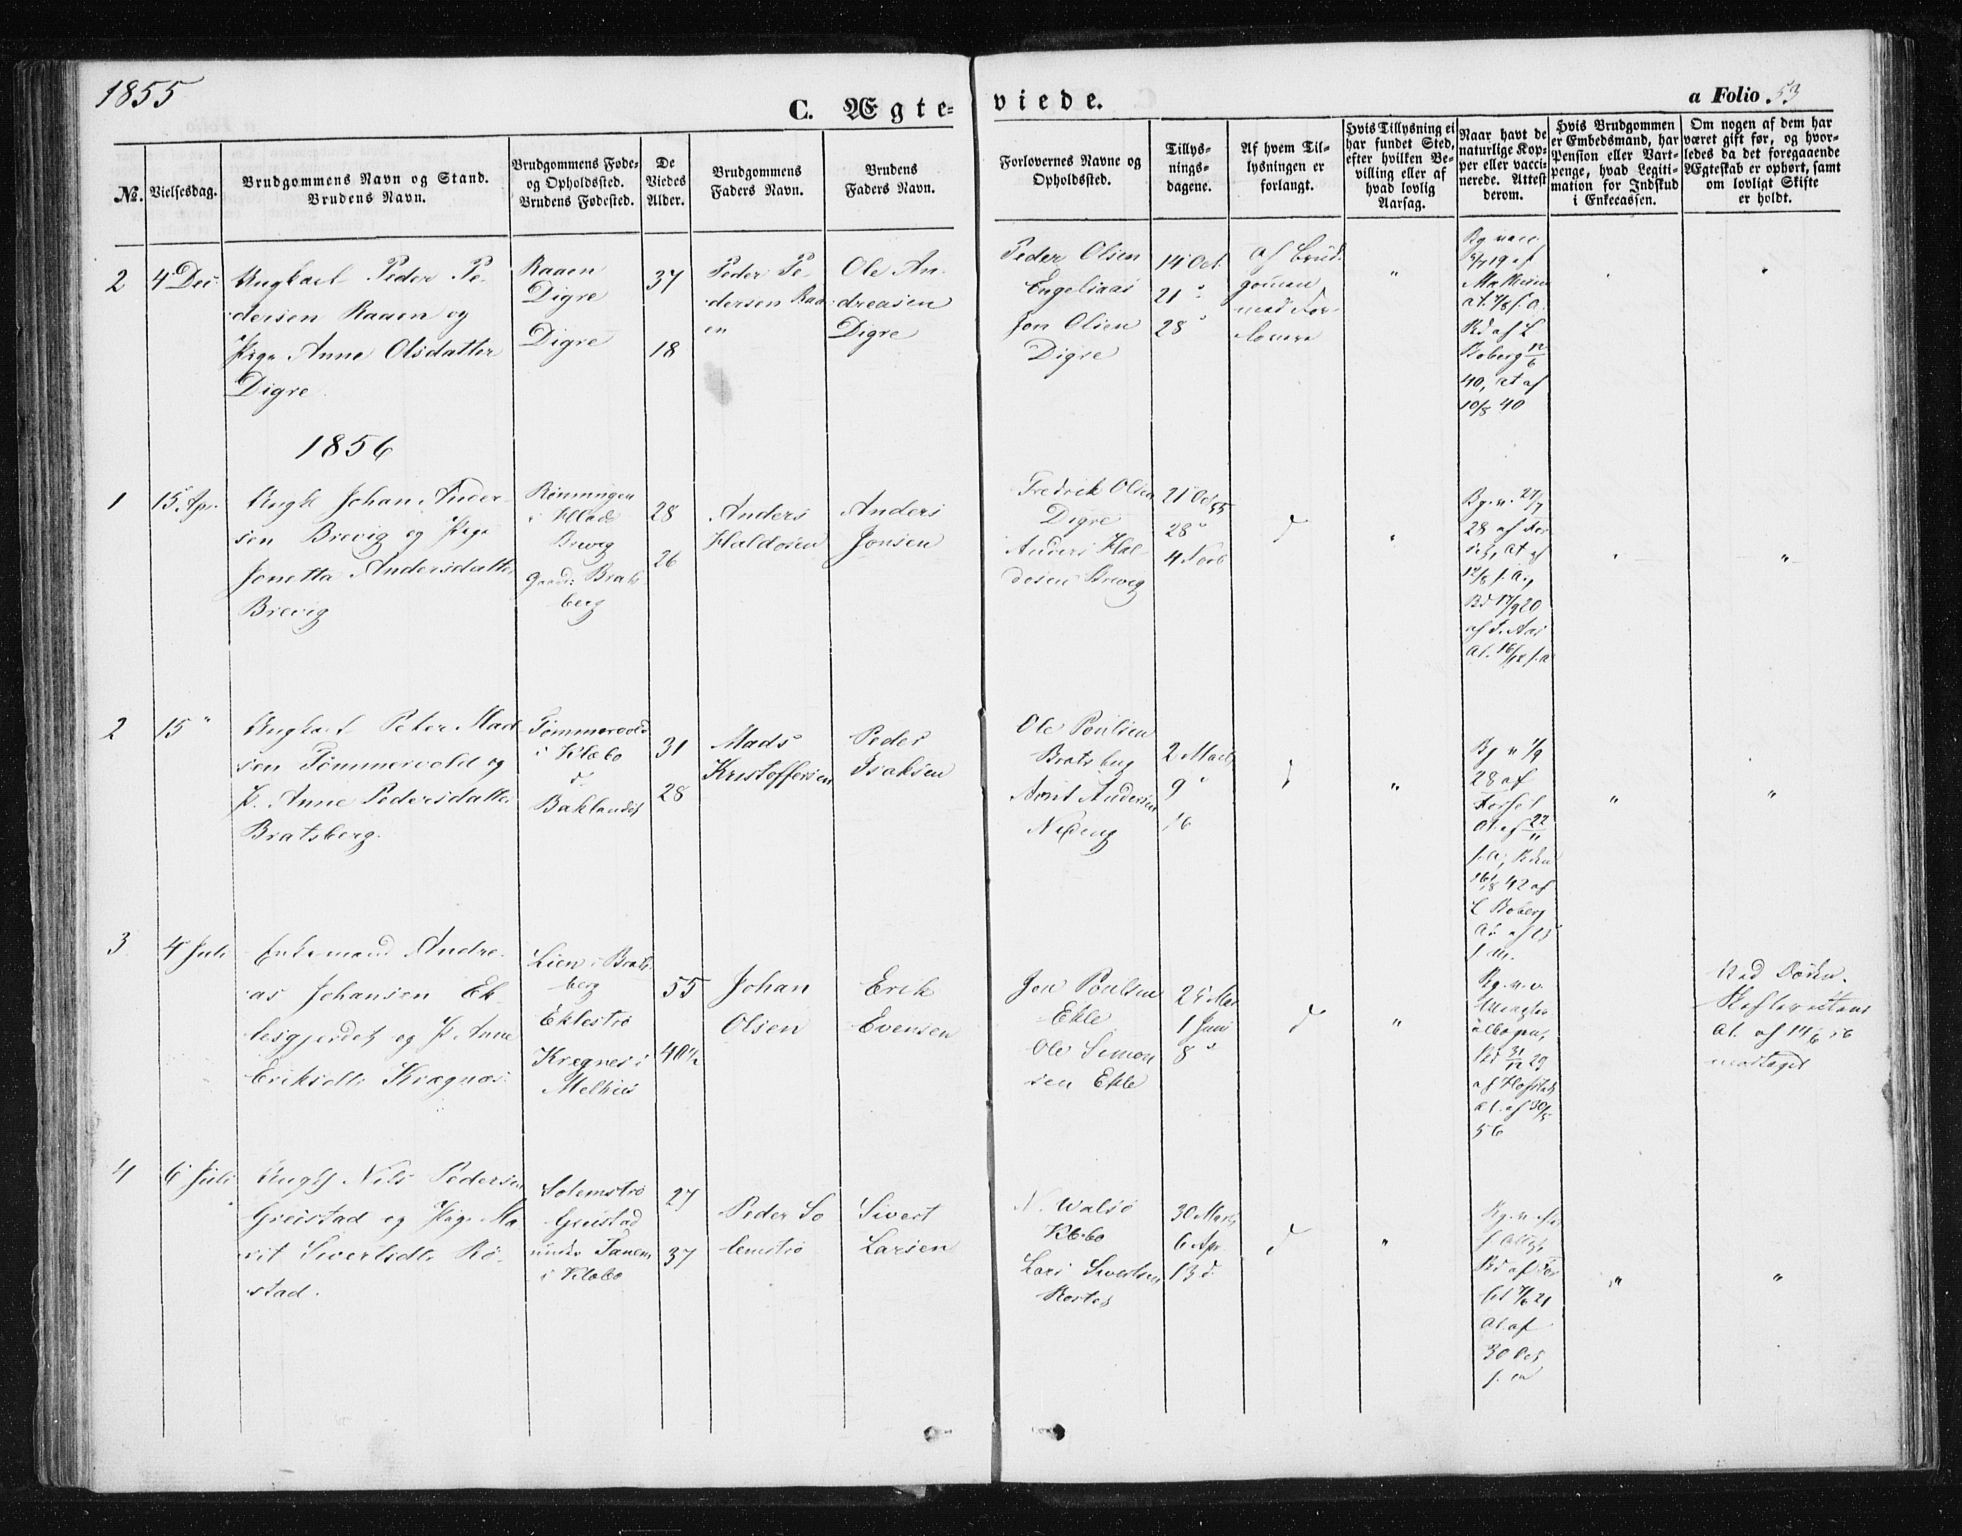 1855
C. Ægte-
viede.
a Folio 53
No.
Vielsesdag.
Brudgommens Navn og Stand.
Brudens Navn.
Brudgommens Føde-
og Opholdssted.
Brudens Fødested.
De
Viedes
Alder.
Brudgommens
Faders Navn.
Brudens
Faders Navn.
Forlovernes Navne og
Opholdssted.
Tillys-
nings-
dagene.
Af hvem Til-
lysningen er
forlangt.
Hvis Tillysning ei
har fundet Sted,
efter hvilken Be-
villing eller af
hvad lovlig
Aarsag.
Naar havt de
naturlige Kop-
per eller vacci-
nerede. Attest
derom.
Hvis Brudgommen
er Embedsmand, har
Pension eller Vart-
penge, hvad Legiti-
mation for Indskud
i Enkecassen.
Om nogen af dem har
været gift før, og hvor-
ledes da det foregaaende
Ægteskab er ophørt, samt
om lovligt Skifte
er holdt.
2
4 Dec
Ungkarl Peder Pe-
dersen Raaen og
Pige Anne Olsdatter
Digre
Raaen
Digre
Digre
37
18
Peder Pe-
dersen Raa-
en
Ole An-
dreasen
Digre
Peder Olsen
Engeliaas
Jon Olsen
Digre
14 Oct.
21 "
28 "
af Brud-
gommen
med For-
lovere
"
Bg vacc.
af
at. 7/8 s. a.
Bd af L
Boberg 12/6
40, at af
10/8 40
"
1856
1
15 Apr.
Ungk Johan Ander-
sen Brevig og Pige
Jonetta Andersdatter
Brevig
Rønningen
i Klæbo
Brevig
Brats-
berg
28
26
Anders
Haldosen
Anders
Jonsen
Fredrik Olsen
Digre
Anders Hal-
dosen Brevig
21 Oct 55
28 "
4 Novb
d
"
Bg. v. 27/7
28 af For-
set, at af
17/8 s. a,
Bd 17/9 20
af
at. 16/12 s. a
"
"
2
15 "
Ungkarl Peter Mad-
sen Tømmervold og
P. Anne Pedersdatter
Bratsberg.
Tømmervold
i Klæbo
d.
Baklandet
31
28
Mads
Kristoffersen
Peder
Isaksen
Ole Poulsen
Bratsberg
Arnt Andersen
2 Marts
9 "
16
"
Bg v 1/9
28 af
Forset
at af 22/11
s. a,
42 af
L Boberg
at af
s. a.
"
"
3
4 Juli
Enkemand Andre-
as Johansen Ek-
lesgjerdet og P. Anne
Eriksdtr Krægnæs
Lien i Brats-
berg
Eklestrø
Kregnes i
Melhus
55
40½
Johan
Olsen
Erik
Evensen
Jon Poulsen
Ekle
Ole Simon-
sen Ekle
25 Mai
1 Juni
8 "
d
"
Bg. v.
Bd 31/12 29
af
at. af 30/5
56
Ved Døden.
at. af 14/6 56
modtaget
4
6 Juli
Ungk Nils Pedersen
Greistad og Pige Ma-
rit Sivertsdtr Rø-
stad.
Solemstrø
Greistad
under Tanem
i Klæbo
27
37
Peder So-
lemstrø
Sivert
Larsen
N. Walsø
Klæbo
Lars Sivertsen
Rostad
30 Marts
6 Apr.
13 d.
d
"
Bg. v.
Bd af For-
set 7/6 21
at af
30 Oct
s. a
"
"